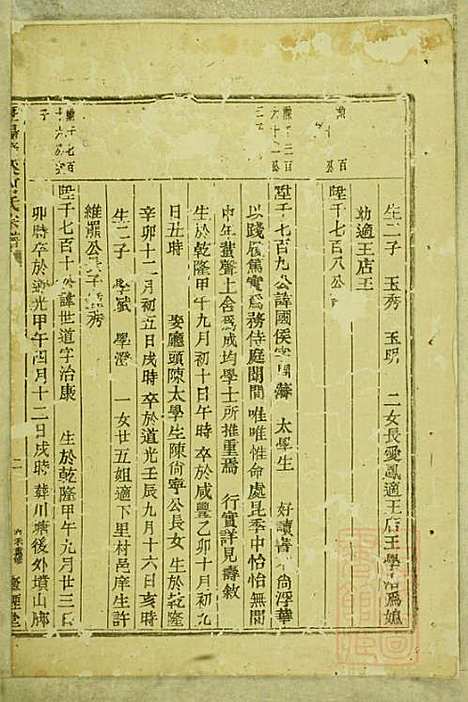 生二子 玉秀 玉明 二女長愛鳳適王店王學浩爲媳
幼適王店王
陞千七百八公
陞千七百九公諱國侯字 藩 太學生 好讀書不尙浮華
以踐履篤實爲務侍庭闈間唯唯惟命處昆季中怡怡無間
中年蜚聲上舍爲成均學士所推重焉 行實詳見壽敘
生於乾隆甲午九月初十日午時 卒於咸豐乙卯十月初九
日丑時 娶廳頭陳太學生陳尙寧公長女 生於乾隆
辛卯十二月初五日戌時 卒於道光壬辰九月十六日亥時
生二子 學斌 學澄 一女廿五姐適下里村邑庠生許
維羆公長子 秀
陞千七百十公諱世道字治康 生於乾隆甲午九月廿三日
卯時 卒於道光甲午四月十二日戌時 葬川塘後外墳山脚
陞千七百
子
二